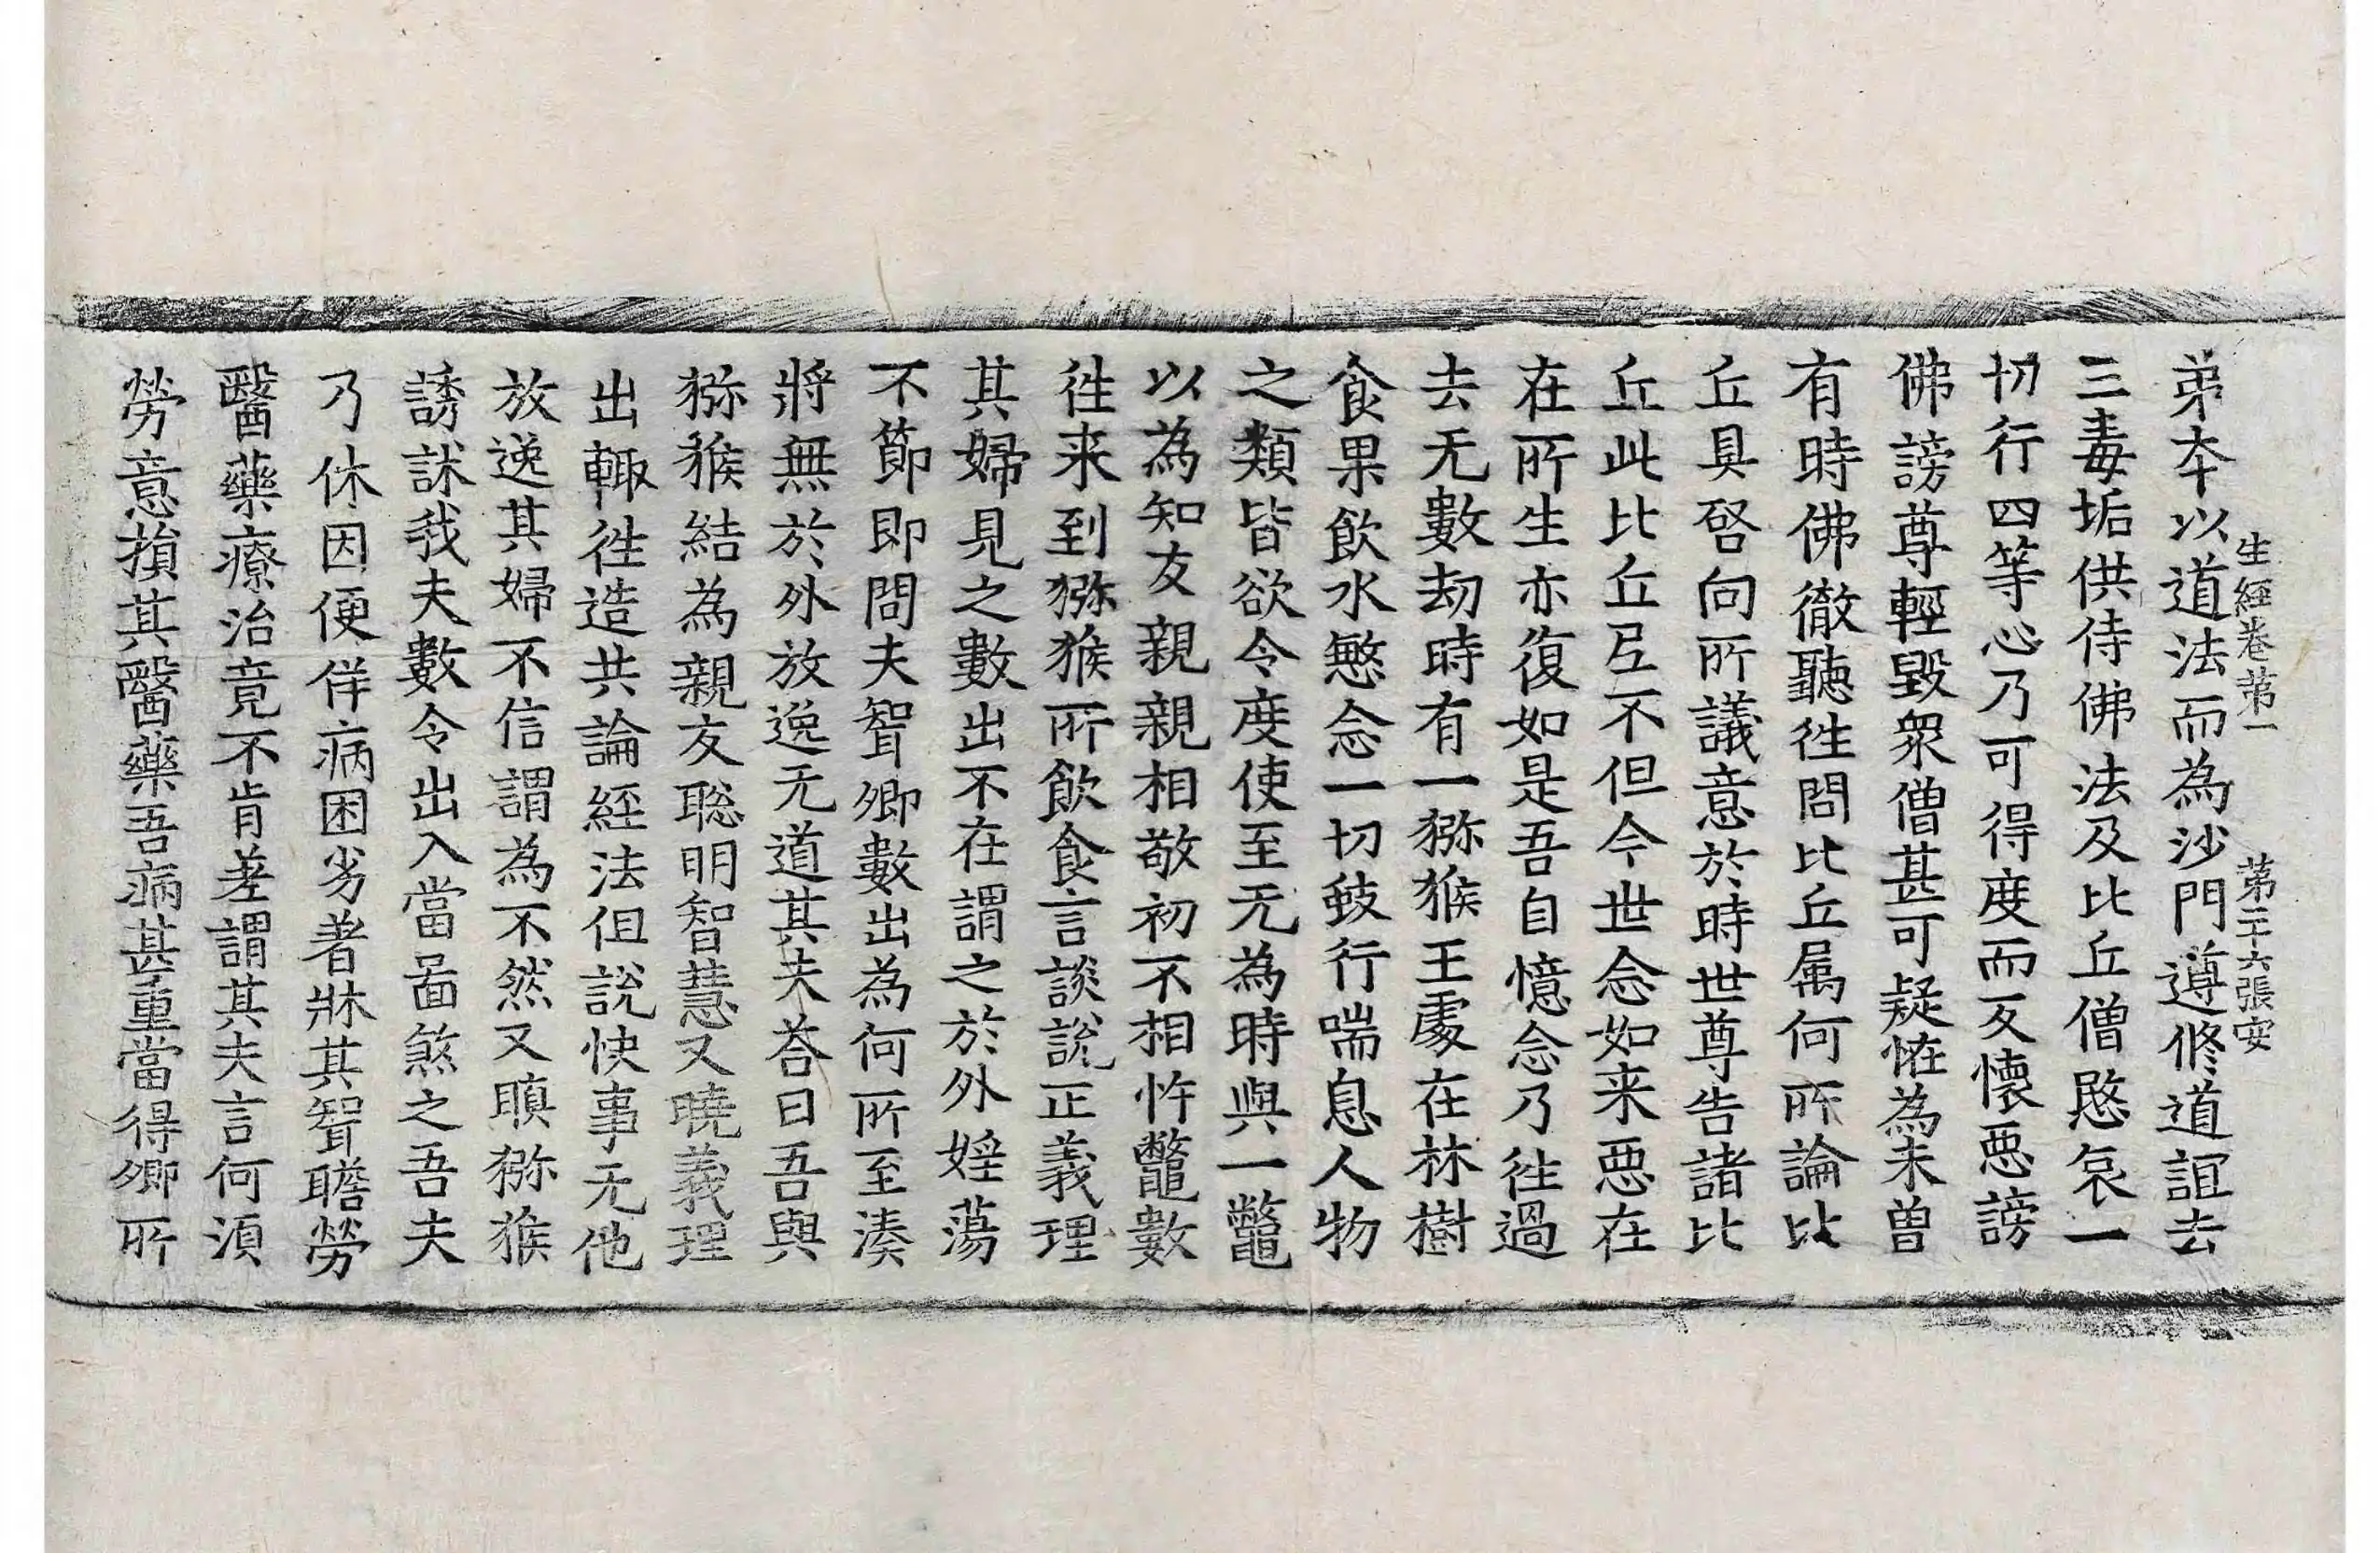 生經卷苐一　苐二十六張安
弟夲以道法而為沙門遵修道誼去
三毒垢供侍佛法及比丘僧愍哀一
切行四等心乃可得度而反懷惡謗
佛謗尊輕毀衆僧甚可疑恠為未曾
有時佛徹聽徃問比丘属何所論比
丘具啓向所議意於時世尊告諸比
丘此比丘𠃵不但今世念如来惡在
在所生亦復如是吾自憶念乃徃過
去无數劫時有一猕猴王處在林樹
食果飲水愍念一切蚑行喘息人物
之類皆欲令度使至无為時與一鼈
以為知友親親相敬初不相忤鼈數
徃来到猕猴所飲食言談說正義理
其婦見之數出不在謂之於外婬蕩
不節即問夫聟卿數出為何所至湊
將無於外放逸无道其夫荅曰吾與
猕猴結為親友聡明智慧又曉義理
出輙徃造共論經法但說快事无他
放逸其婦不信謂為不然又瞋猕猴
誘訹我夫數令出入當啚煞之吾夫
乃休因便佯病困劣著牀其聟瞻勞
醫藥療治竟不肯差謂其夫言何湏
勞意損其醫藥吾病甚重當得卿所